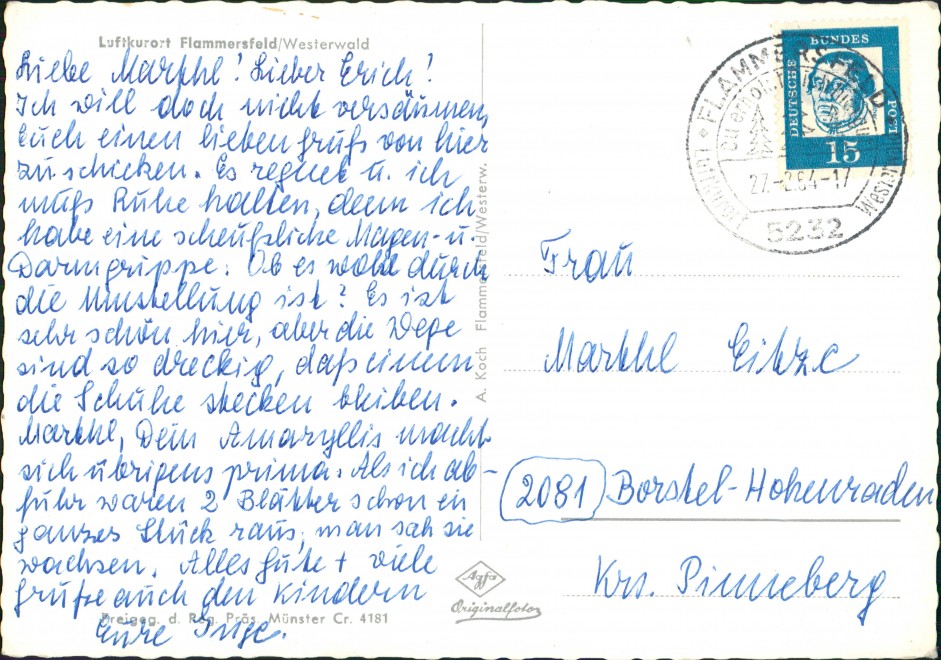 Luftkurort Flammersfeld/Westerwald
Liebe Markhl! Lieber Erich!
Ich will doch nicht versäumen,
Euch einen lieben Gruß von hier
zu schicken. Es regnet u. ich
muß Ruhe halten, denn ich
habe eine scheußliche Magen- u.
Darmgrippe. Ob es wohl durch
die Umstellung ist? Es ist
sehr schön hier, aber die Wege
sind so dreckig, daß einem
die Schuhe stecken bleiben.
Markhl, Dein Amaryllis macht
sich übrigens prima. Als ich ab-
fuhr waren 2 Blätter schon ein
ganzes Stück raus, man sah sie
wachsen. Alles Gute + viele
Grüße auch den Kindern
Eure Inge.
Freigeg. d. Reg. Präs. Münster Cr. 4181
A. Koch Flammersfeld/Westerw.
Agfa
Originalfoto
DEUTSCHE
BUNDES
POST
15
FLAMMERSFELD
Luftkurort
Westerwald
27.-2.64-17
5232
Frau
Markhl Eitze
2081 Borstel-Hohenraden
Krs. Pinneberg